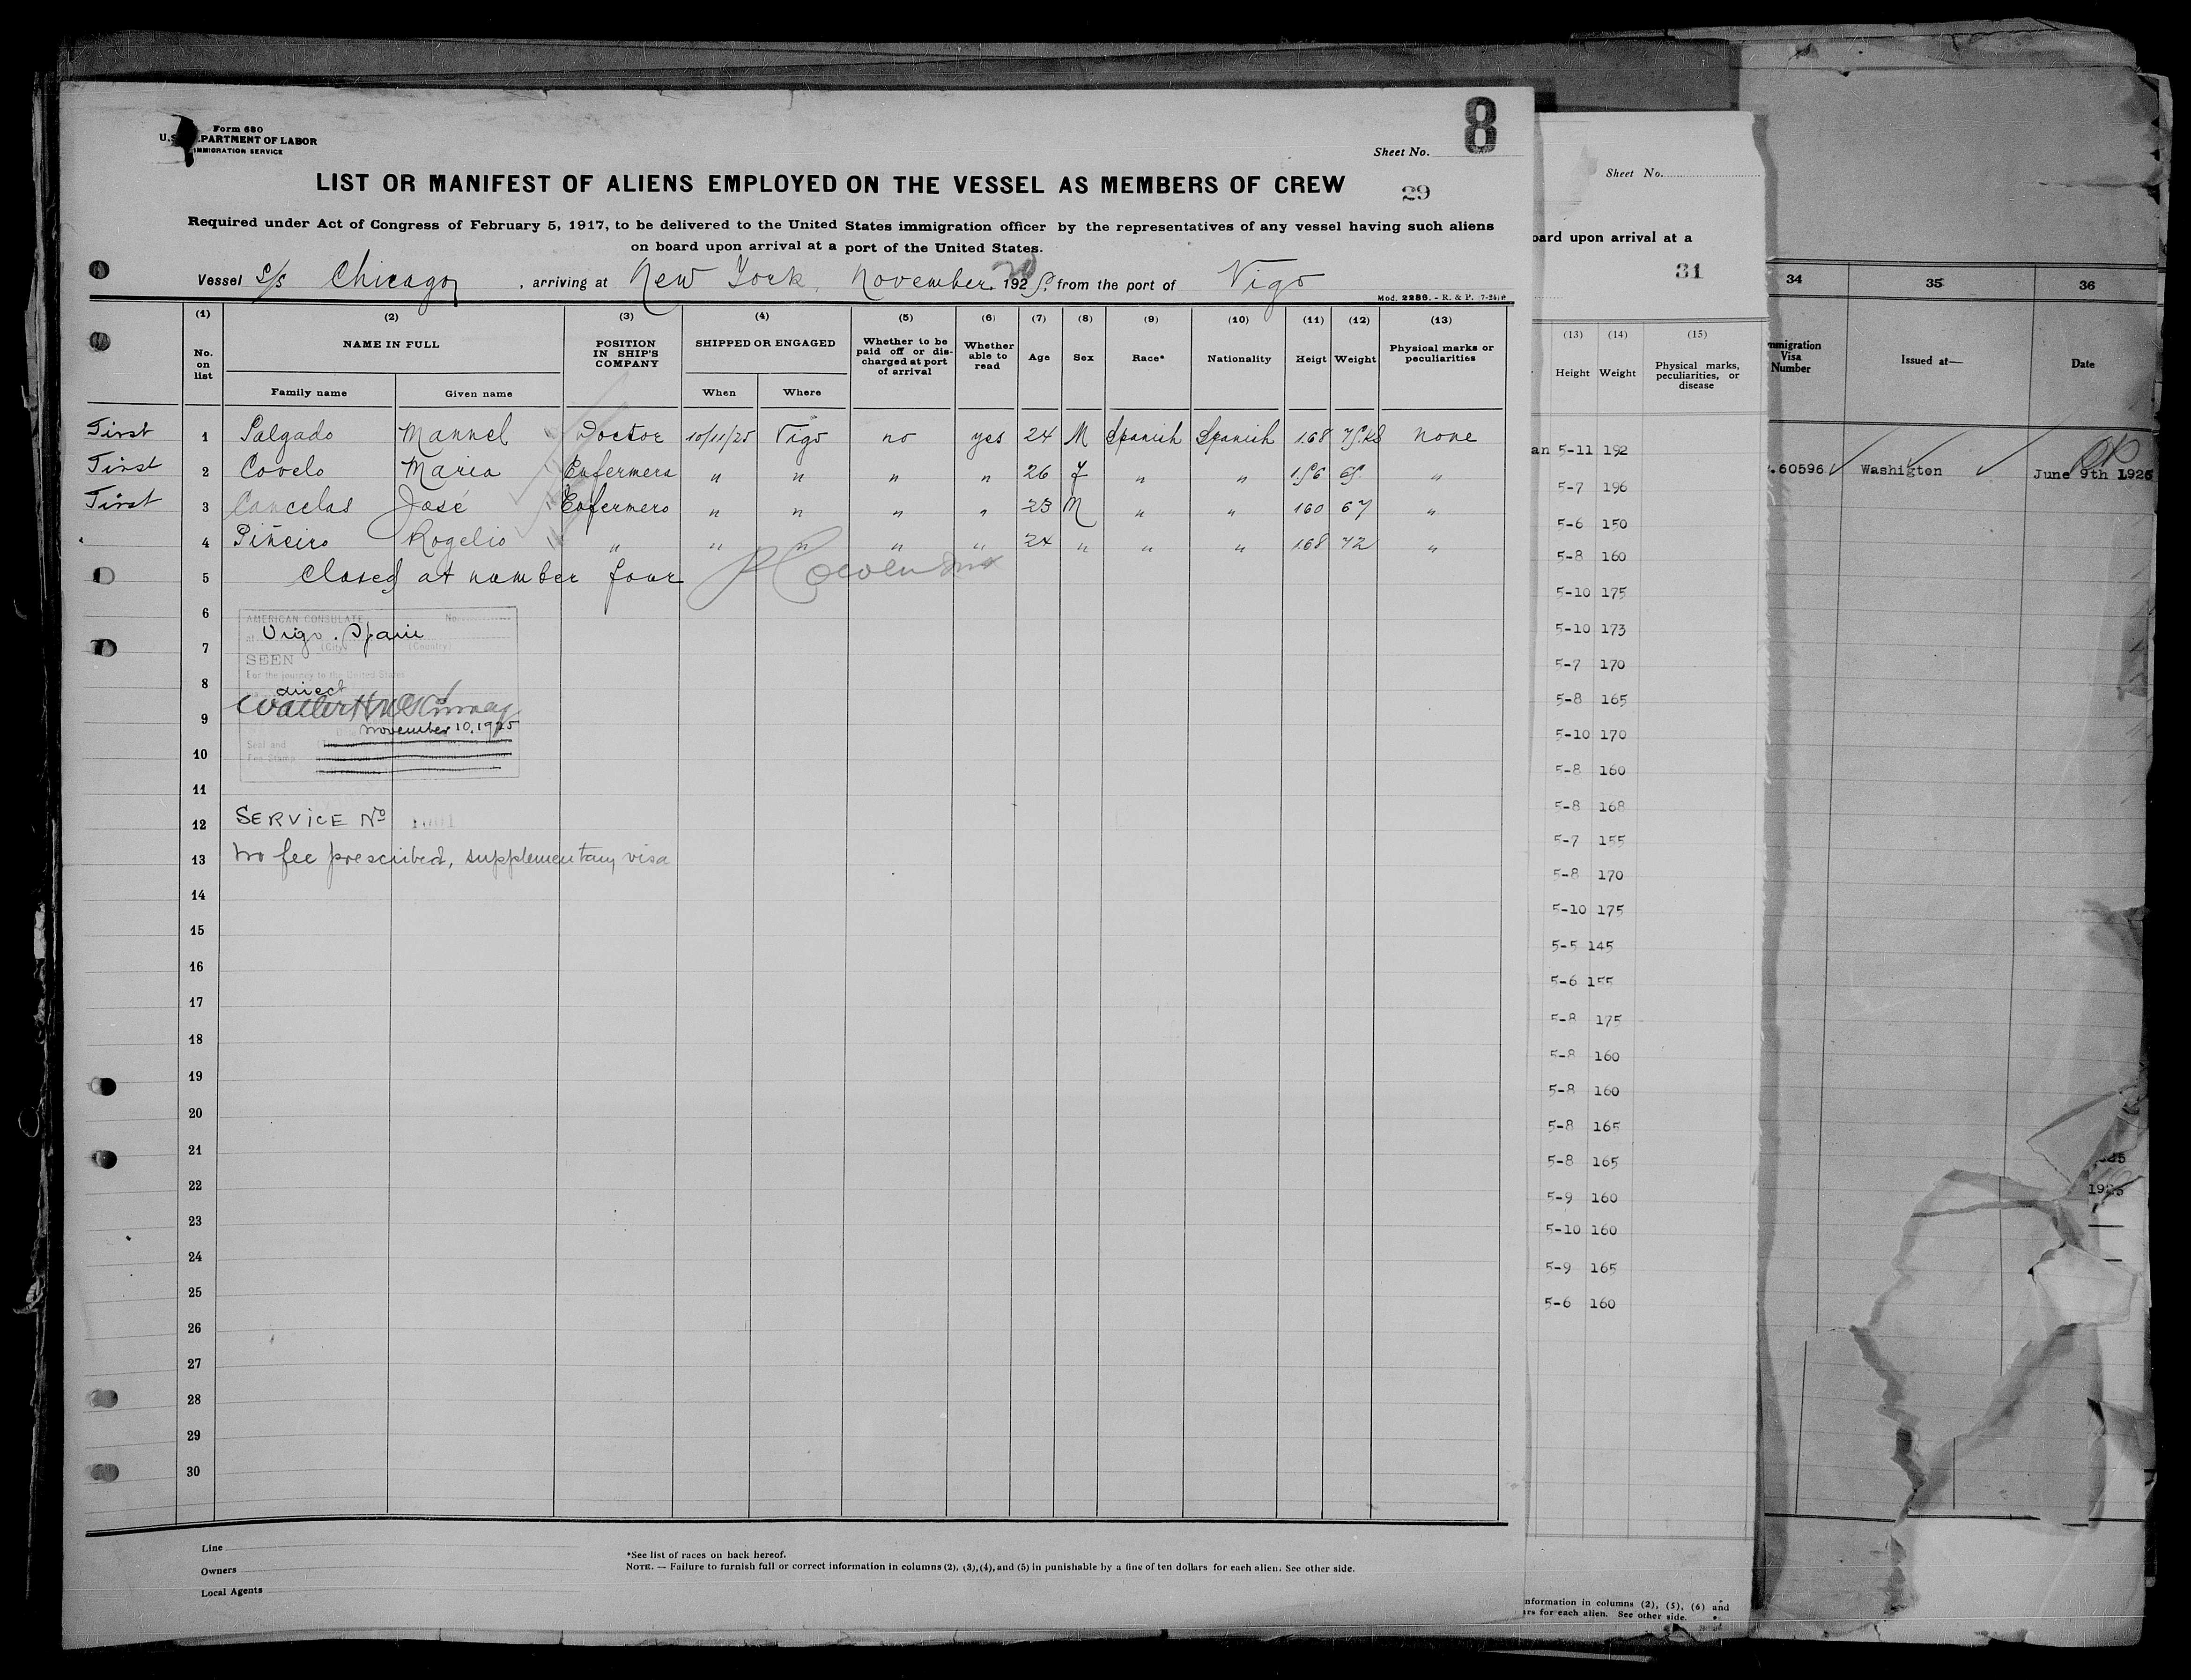 Form 680
U.S. DEPARTMENT OF LABOR
IMMIGRATION SERVICE
Sheet No. 8
LIST OR MANIFEST OF ALIENS EMPLOYED ON THE VESSEL AS MEMBERS OF CREW
29
Required under Act of Congress of February 5, 1917, to be delivered to the United States immigration officer by the representatives of any vessel having such aliens
on board upon arrival at a port of the United States.
Vessel S/s Chicago, arriving at New York, November 20 1925. from the port of Vigo
Mod. 2286. - R. & P.
(1) (2) (3) (4) (5) (6) (7) (8) (9) (10) (11) (12) (13)
No. on list NAME IN FULL POSITION IN SHIP'S COMPANY SHIPPED OR ENGAGED Whether to be paid off or dis-charged at port of arrival Whether able to read Age Sex Race* Nationality Heigt Weight Physical marks or peculiarities
Family name Given name When Where
First 1 Salgado Manuel Doctor 10/11/25 Vigo no yes 24 M Spanish Spanish 1.68 75.KS none
First 2 Covelo Maria Enfermera " " " " 26 F " " 1.56 65. "
First 3 Cancelas José Enfermero " " " " 23 M " " 160 67 "
4 Piñeiro Rogelio " " " " " 24 " " " 1.68 72 "
5 Closed at number four
6
AMERICAN CONSULATE No.
at Vigo. Spain
7
(City) (Country)
SEEN
For the journey to the United States
8
via direct
9
November 10, 1925
Seal and
10
Fee Stamp
11
12 SERVICE No
13 No fee prescribed, supplementary visa
14
15
16
17
18
19
20
21
22
23
24
25
26
27
28
29
30
Line
Owners
Local Agents
*See list of races on back hereof.
NOTE. — Failure to furnish full or correct information in columns (2), (3), (4), and (5) in punishable by a fine of ten dollars for each alien. See other side.
Sheet No.
oard upon arrival at a
31
(13) (14) (15)
Height Weight Physical marks, peculiarities, or disease
an 5-11 192
5-7 196
5-6 150
5-8 160
5-10 175
5-10 173
5-7 170
5-8 165
5-10 170
5-8 160
5-8 168
5-7 155
5-8 170
5-10 175
5-5 145
5-6 155
5-8 175
5-8 160
5-8 160
5-8 165
5-8 165
5-9 160
5-10 160
5-9 165
5-6 160
nformation in columns (2), (5), (6) and
rs for each alien. See other side.
34 35 36
mmigration Visa Number Issued at— Date
.60596 Washigton June 9th 1925
1925